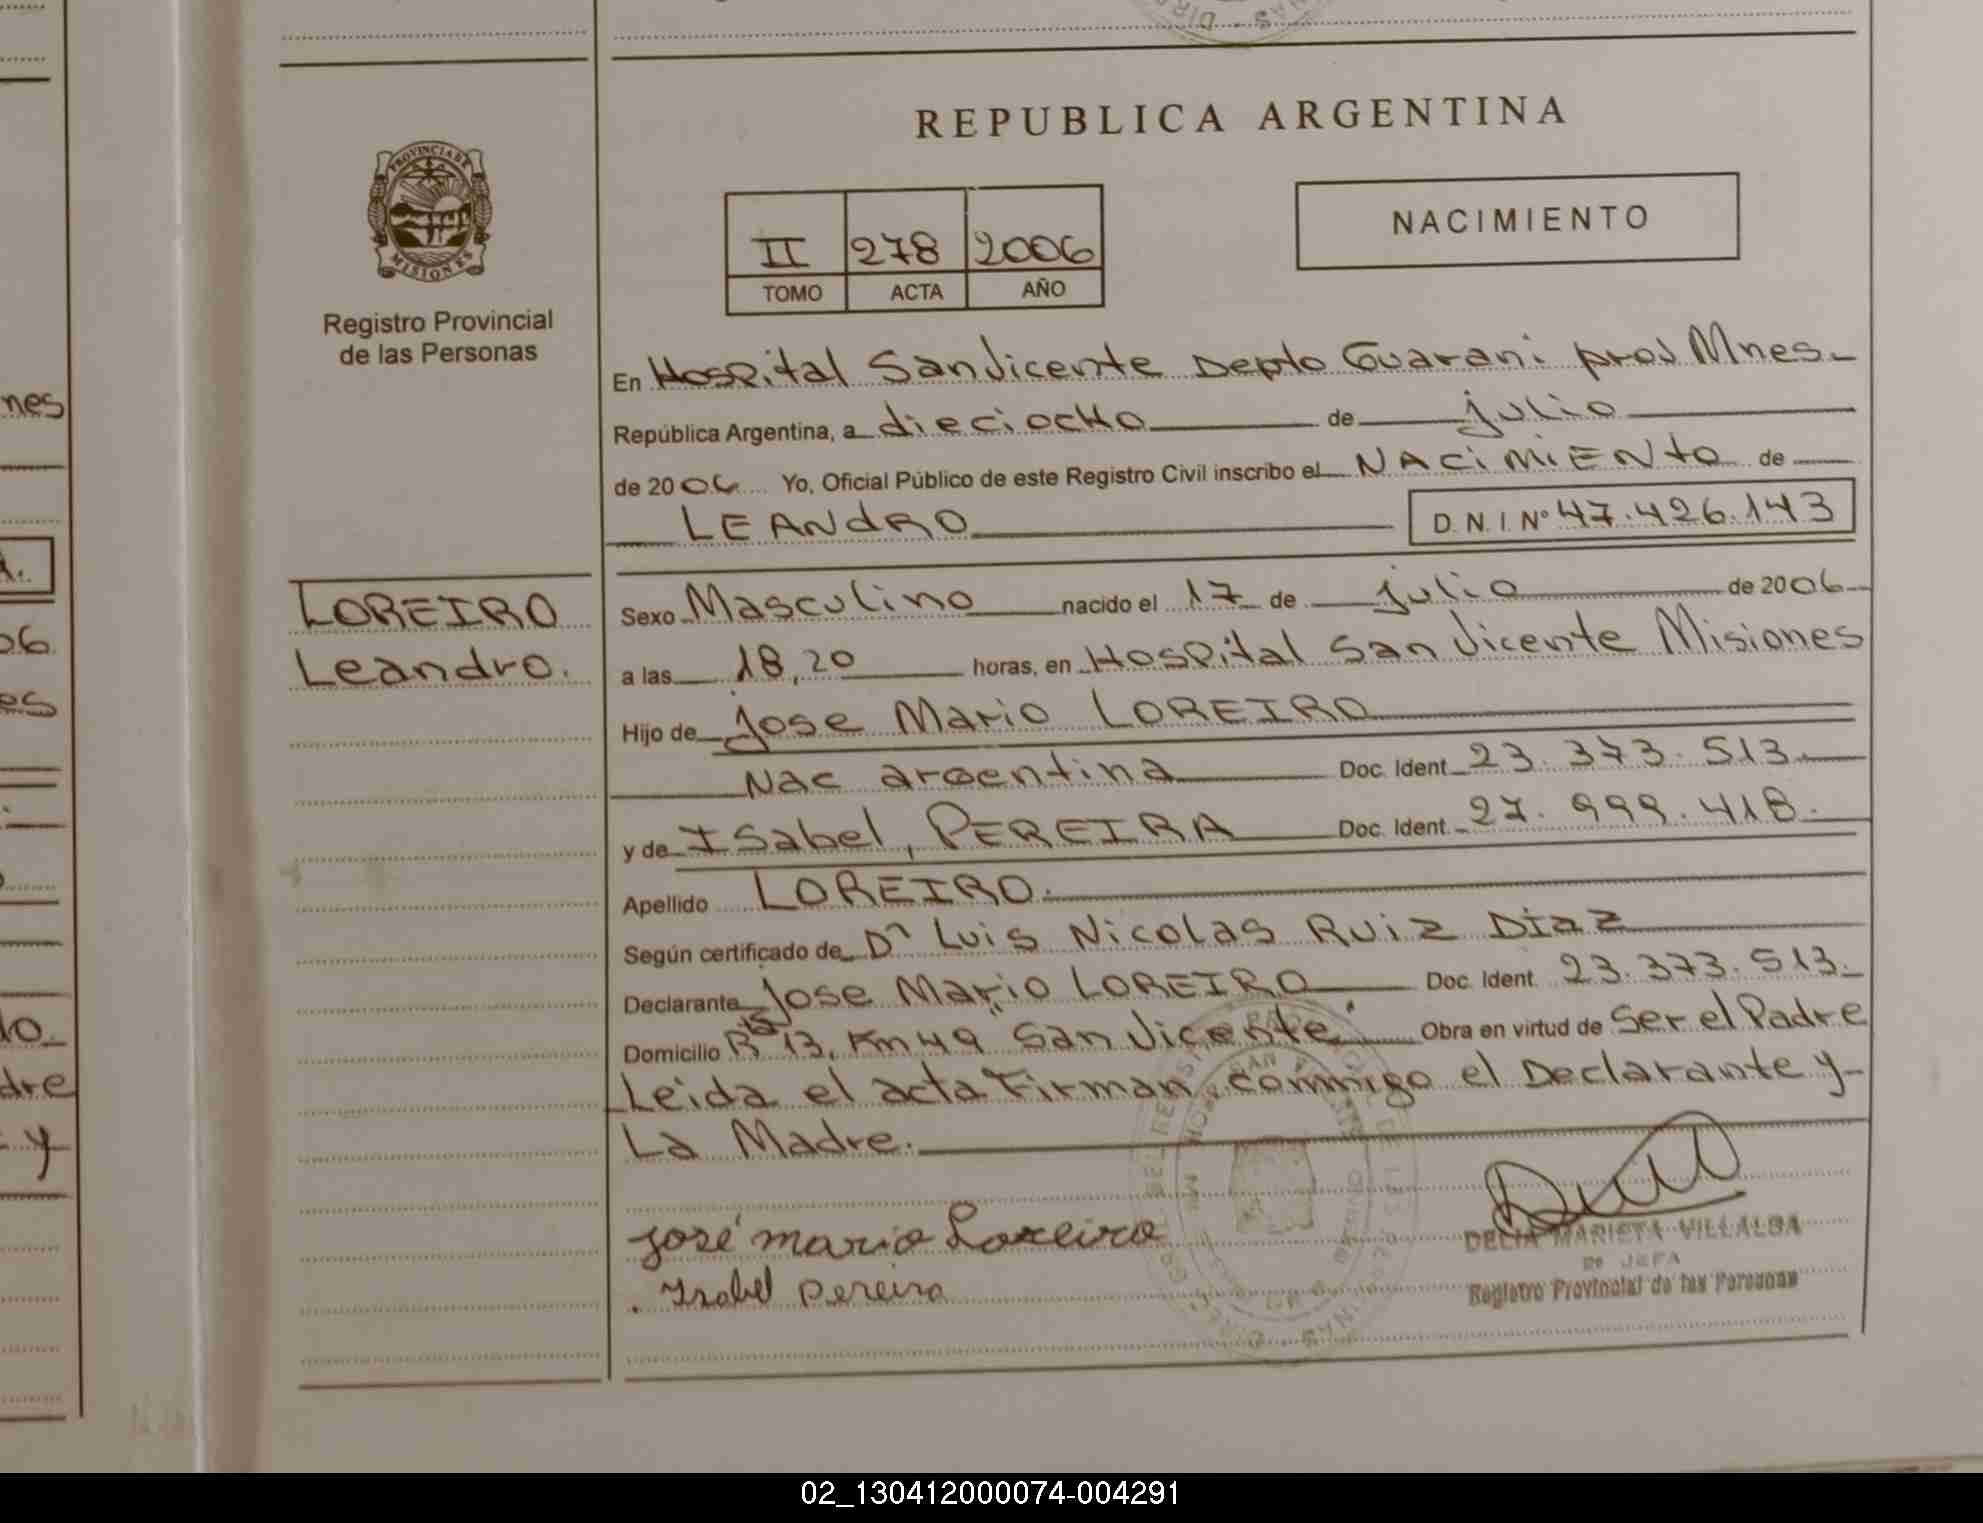 REPUBLICA ARGENTINA
PROVINCIA DE
MISIONES
Registro Provincial
de las Personas
II 278 2006
TOMO ACTA AÑO
NACIMIENTO
En Hospital San Vicente Depto Guarani prov Mnes.
República Argentina, a dieciocho de julio
de 2006 Yo, Oficial Público de este Registro Civil inscribo el NACIMIENTO de
LEANDRO D.N.I. Nº 47.426.143
LOREIRO
Leandro.
Sexo Masculino nacido el 17 de julio de 2006
a las 18,20 horas, en Hospital San Vicente Misiones
Hijo de Jose Mario LOREIRO
Nac argentina Doc. Ident. 23.373.513.
y de Isabel, PEREIRA Doc. Ident. 27.999.418.
Apellido LOREIRO.
Según certificado de Dr Luis Nicolas Ruiz Diaz
Declarante Jose Mario LOREIRO Doc. Ident. 23.373.513.
Domicilio 13, Km 49 "San Vicente" Obra en virtud de Ser el Padre
Leida el acta Firman conmigo el Declarante y
La Madre.
José mario Loreiro
Isabel Pereira
DELIA MARIETA VILLALBA
JEFA
Registro Provincial de las Personas
nes
06
es
lo
dre
y
02_130412000074-004291